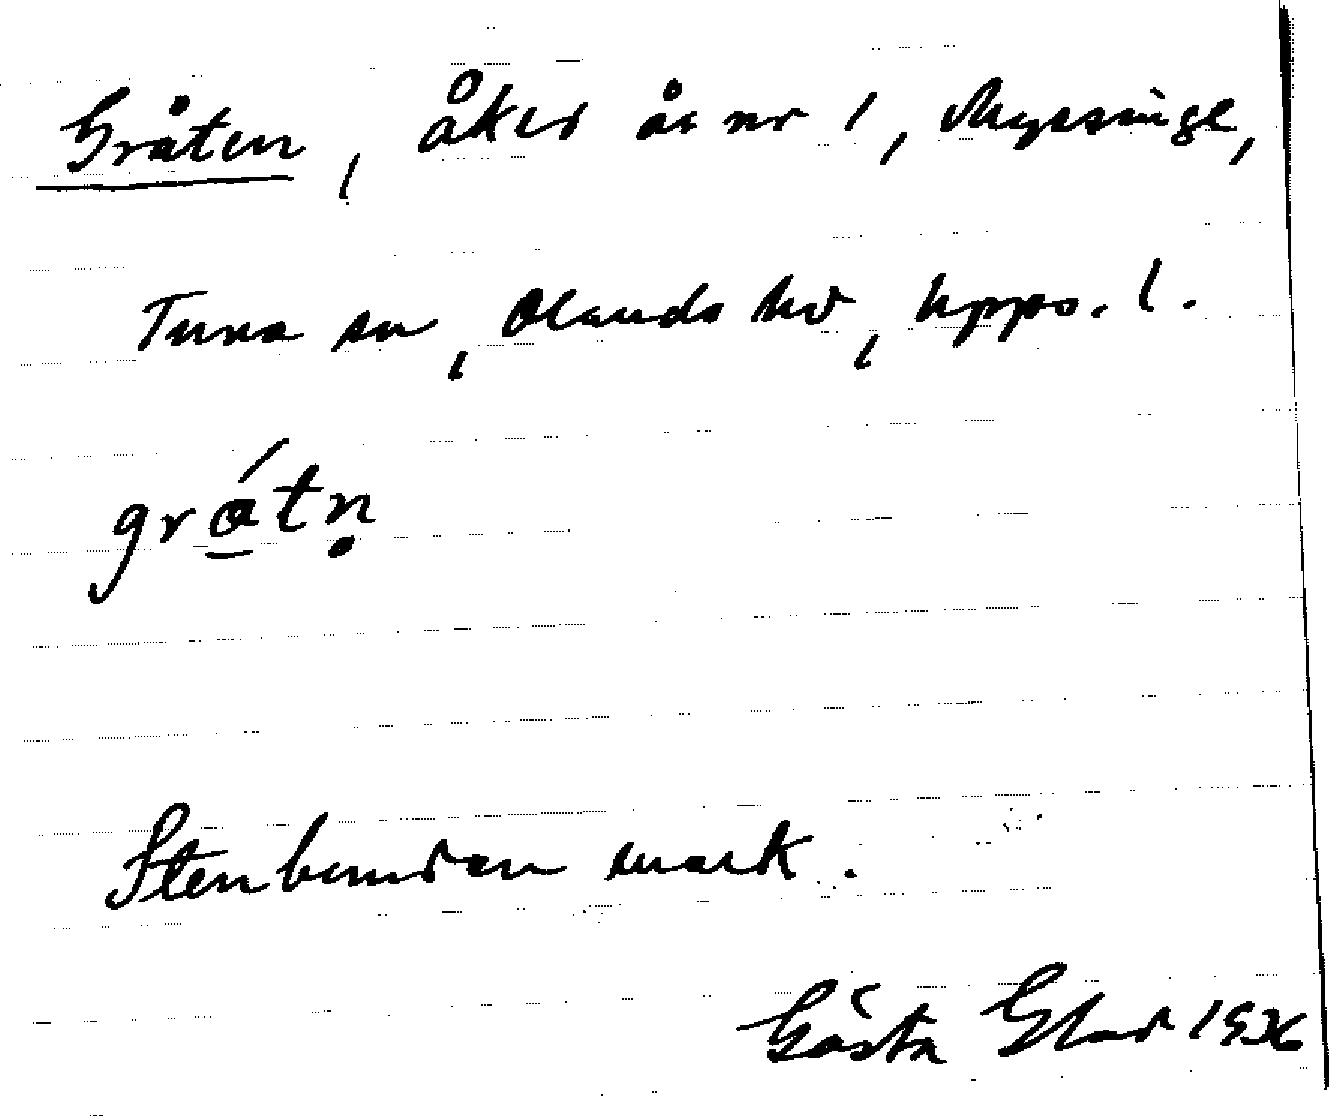 Gråten, åker nr 1, Myssinge,
Tuna sn, Olands hd, Upps. l.
grátṇ
Stenbunden mark.
Gösta